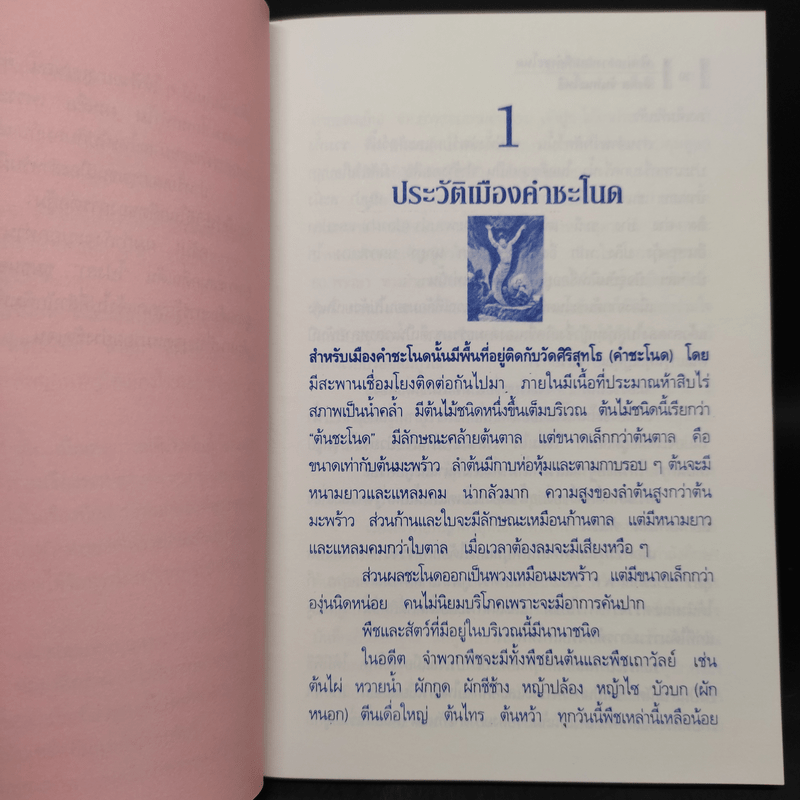 1
ประวัติเมืองคำชะโนด
สำหรับเมืองคำชะโนดนั้นมีพื้นที่อยู่ติดกับวัดศิริสุทโธ (คำชะโนด) โดย
มีสะพานเชื่อมโยงติดต่อกันไปมา ภายในมีเนื้อที่ประมาณห้าสิบไร่
สภาพเป็นน้ำคล้ำ มีต้นไม้ชนิดหนึ่งขึ้นเต็มบริเวณ ต้นไม้ชนิดนี้เรียกว่า
"ต้นชะโนด" มีลักษณะคล้ายต้นตาล แต่ขนาดเล็กกว่าต้นตาล คือ
ขนาดเท่ากับต้นมะพร้าว ลำต้นมีกาบห่อหุ้มและตามกาบรอบ ๆ ต้นจะมี
หนามยาวและแหลมคม น่ากลัวมาก ความสูงของลำต้นสูงกว่าต้น
มะพร้าว ส่วนก้านและใบจะมีลักษณะเหมือนก้านตาล แต่มีหนามยาว
และแหลมคมกว่าใบตาล เมื่อเวลาต้องลมจะมีเสียงหวือ ๆ
ส่วนผลชะโนดออกเป็นพวงเหมือนมะพร้าว แต่มีขนาดเล็กกว่า
องุ่นนิดหน่อย คนไม่นิยมบริโภคเพราะจะมีอาการคันปาก
พืชและสัตว์ที่มีอยู่ในบริเวณนี้มีนานาชนิด
ในอดีต จำพวกพืชจะมีทั้งพืชยืนต้นและพืชเถาวัลย์ เช่น
ต้นไผ่ หวายน้ำ ผักกูด ผักชีช้าง หญ้าปล้อง หญ้าไซ บัวบก (ผัก
หนอก) ตีนเดื่อใหญ่ ต้นไทร ต้นหว้า ทุกวันนี้พืชเหล่านี้เหลือน้อย